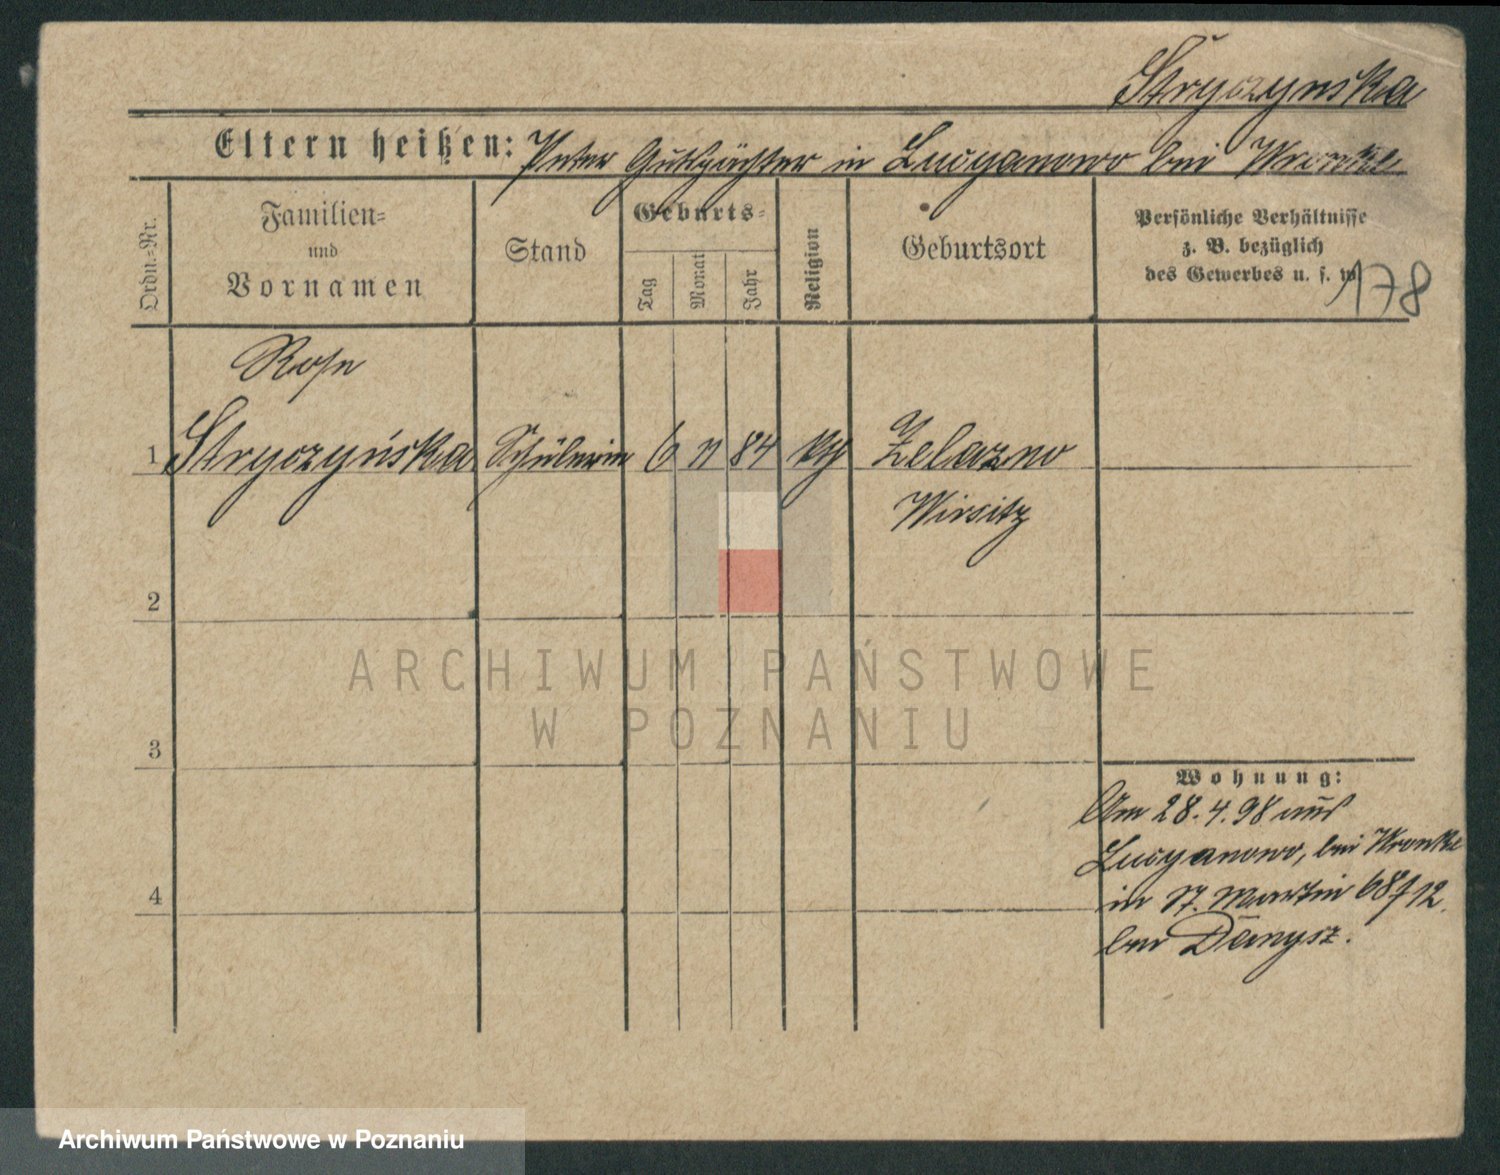 Stryczynska
Eltern heißen: Peter Gutspächter in Lucyanowo bei Wronke
Ordn.-Nr.
Familien-
und
Vornamen
Stand
Geburts-
Tag
Monat
Jahr
Religion
Geburtsort
Persönliche Verhältnisse
z. B. bezüglich
des Gewerbes u. s. w.
178
Rosa
1 Stryczyńska Schülerin 6 84 Zelazno
Wirsitz
2
3
4
Wohnung:
Am 28.4.98 aus
Lucyanowo, bei Wronke
in St. Martin 68 12.
bei Danysz.
ARCHIWUM PAŃSTWOWE
W POZNANIU
Archiwum Państwowe w Poznaniu